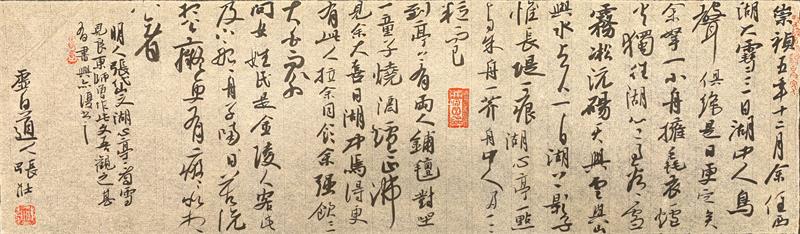 崇禎五年十二月余住西
湖大雪三日湖中人鳥
聲俱絕是日更定矣
余拏一小舟擁毳衣爐
火獨往湖心亭看雪
霧凇沆碭天與雲與山
與水上下一白湖上影子
惟長堤一痕湖心亭一點
與余舟一芥舟中人兩三
粒而已
到亭上有兩人鋪氈對坐
一童子燒酒爐正沸
見余大喜曰湖中焉得更
有此人拉余同飲余強飲三
大白而別
問其姓氏是金陵人客此
及下船舟子喃喃曰莫說
相公癡更有癡似相
公者
明人張岱文湖心亭看雪
見良東師曾作此文吾觀之甚
有書興亦
虛白道人張